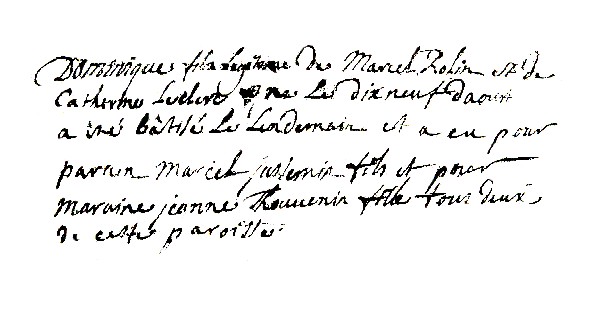 Domenique fils legitime de Marcel Rolin et de
Catherine Leclerc ne Le dix neuf daoust
a été bâtisé Le Lendemain et a eu pour
parain Marcel fils et pour
Maraine jeanne Thouvenin fille tous deux
de cette paroisse